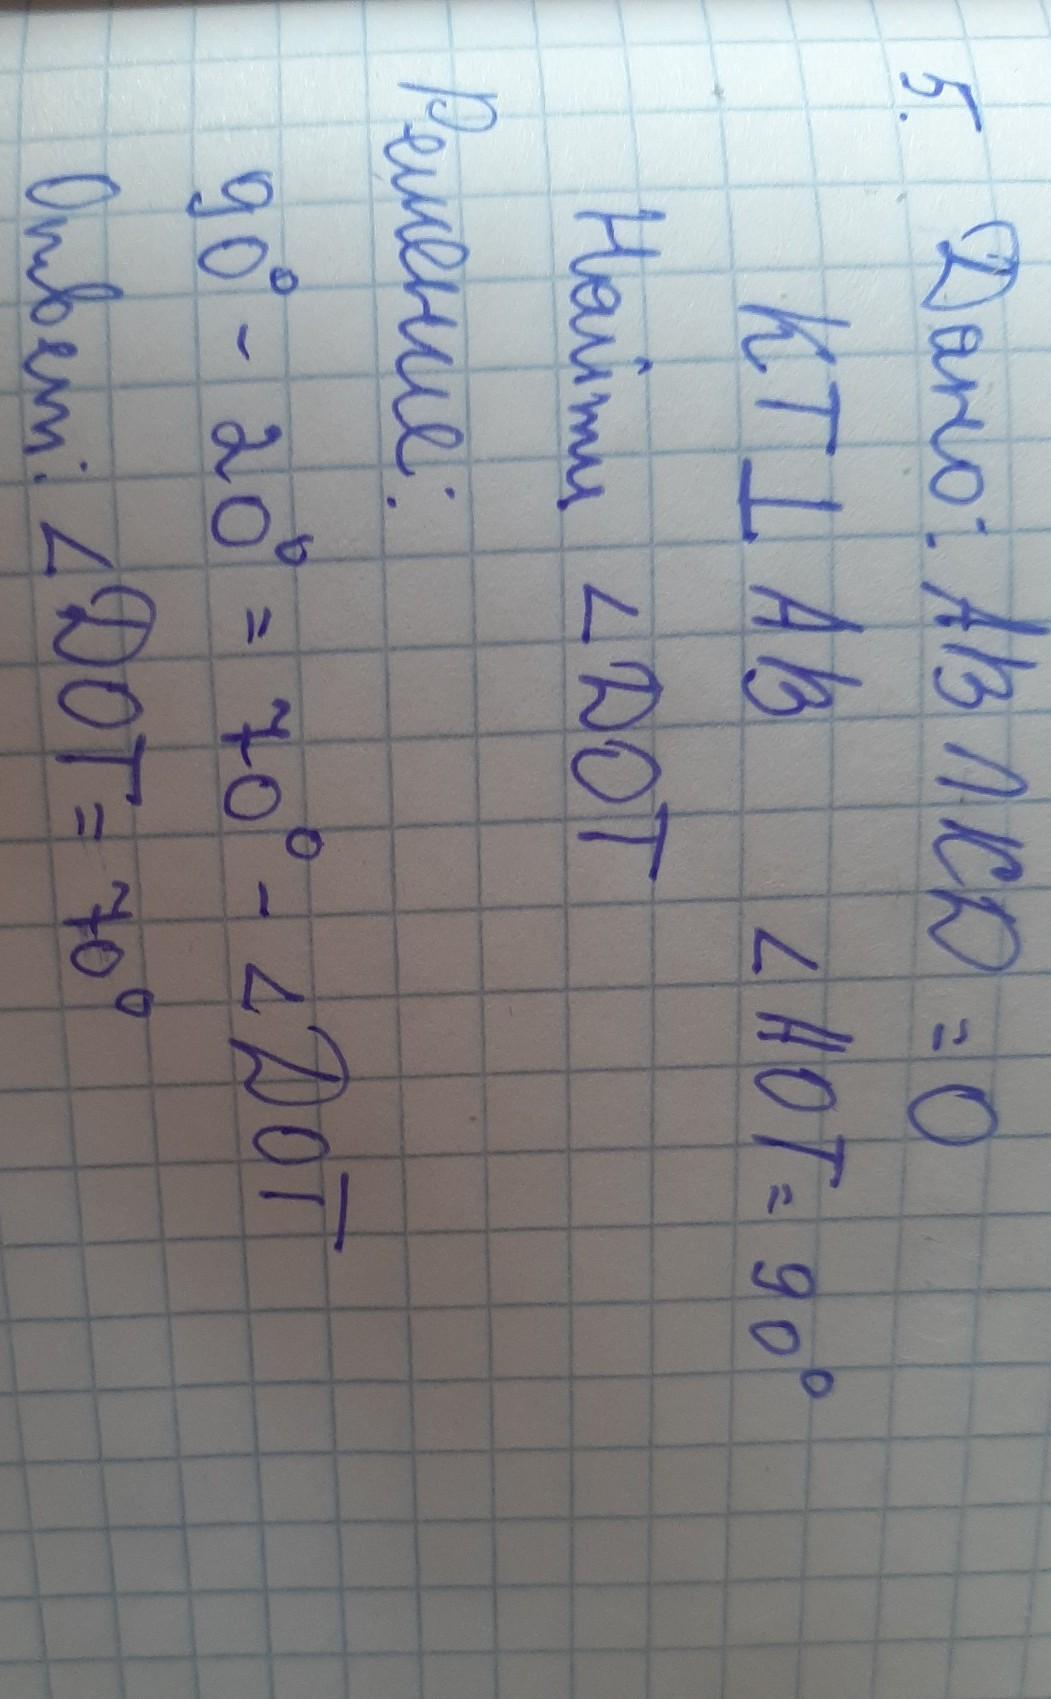 5. Дано: AB ∩ CD = O
KT ⊥ AB ∠AOT = 90°
Найти ∠DOT
Решение:
90° - 20° = 70° - ∠DOT
Ответ: ∠DOT = 70°